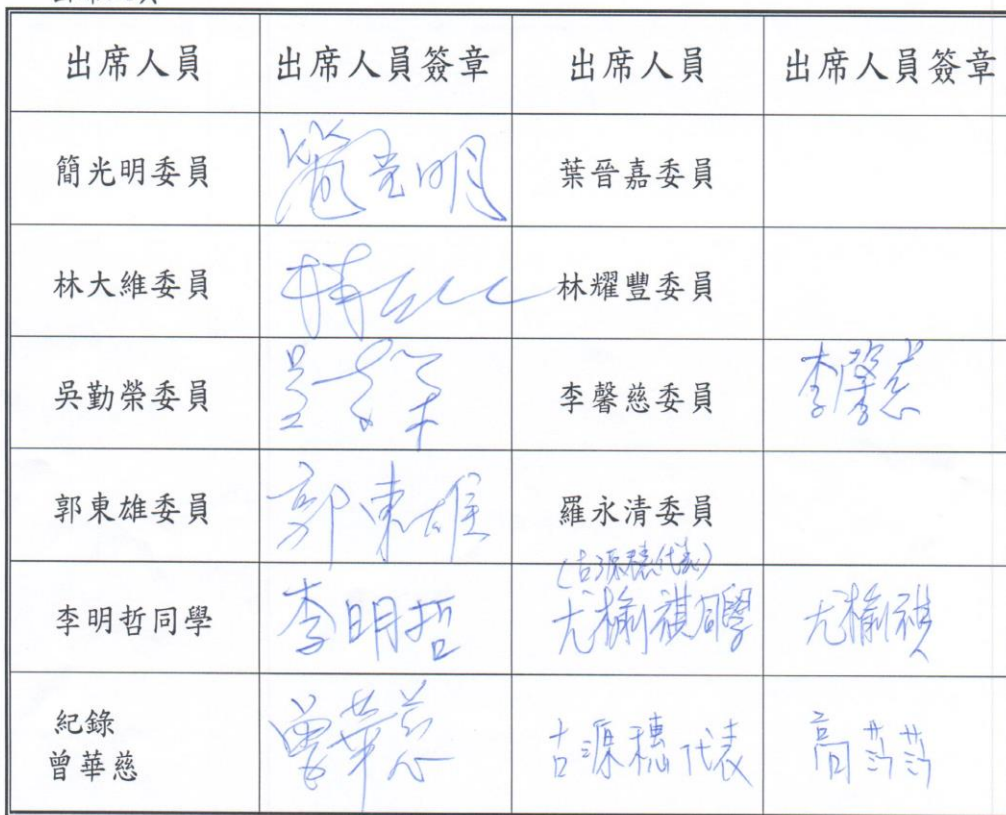 出席人員 出席人員簽章 出席人員 出席人員簽章
簡光明委員 簡光明 葉晉嘉委員
林大維委員 林大維 林耀豐委員
吳勤榮委員 吳勤榮 李馨慈委員 李馨慈
郭東雄委員 郭東雄 羅永清委員
(古源穗代表)
李明哲同學 李明哲 尤榆祺同學 尤榆祺
紀錄
曾華慈 曾華慈 古源穗代表 高莎莎